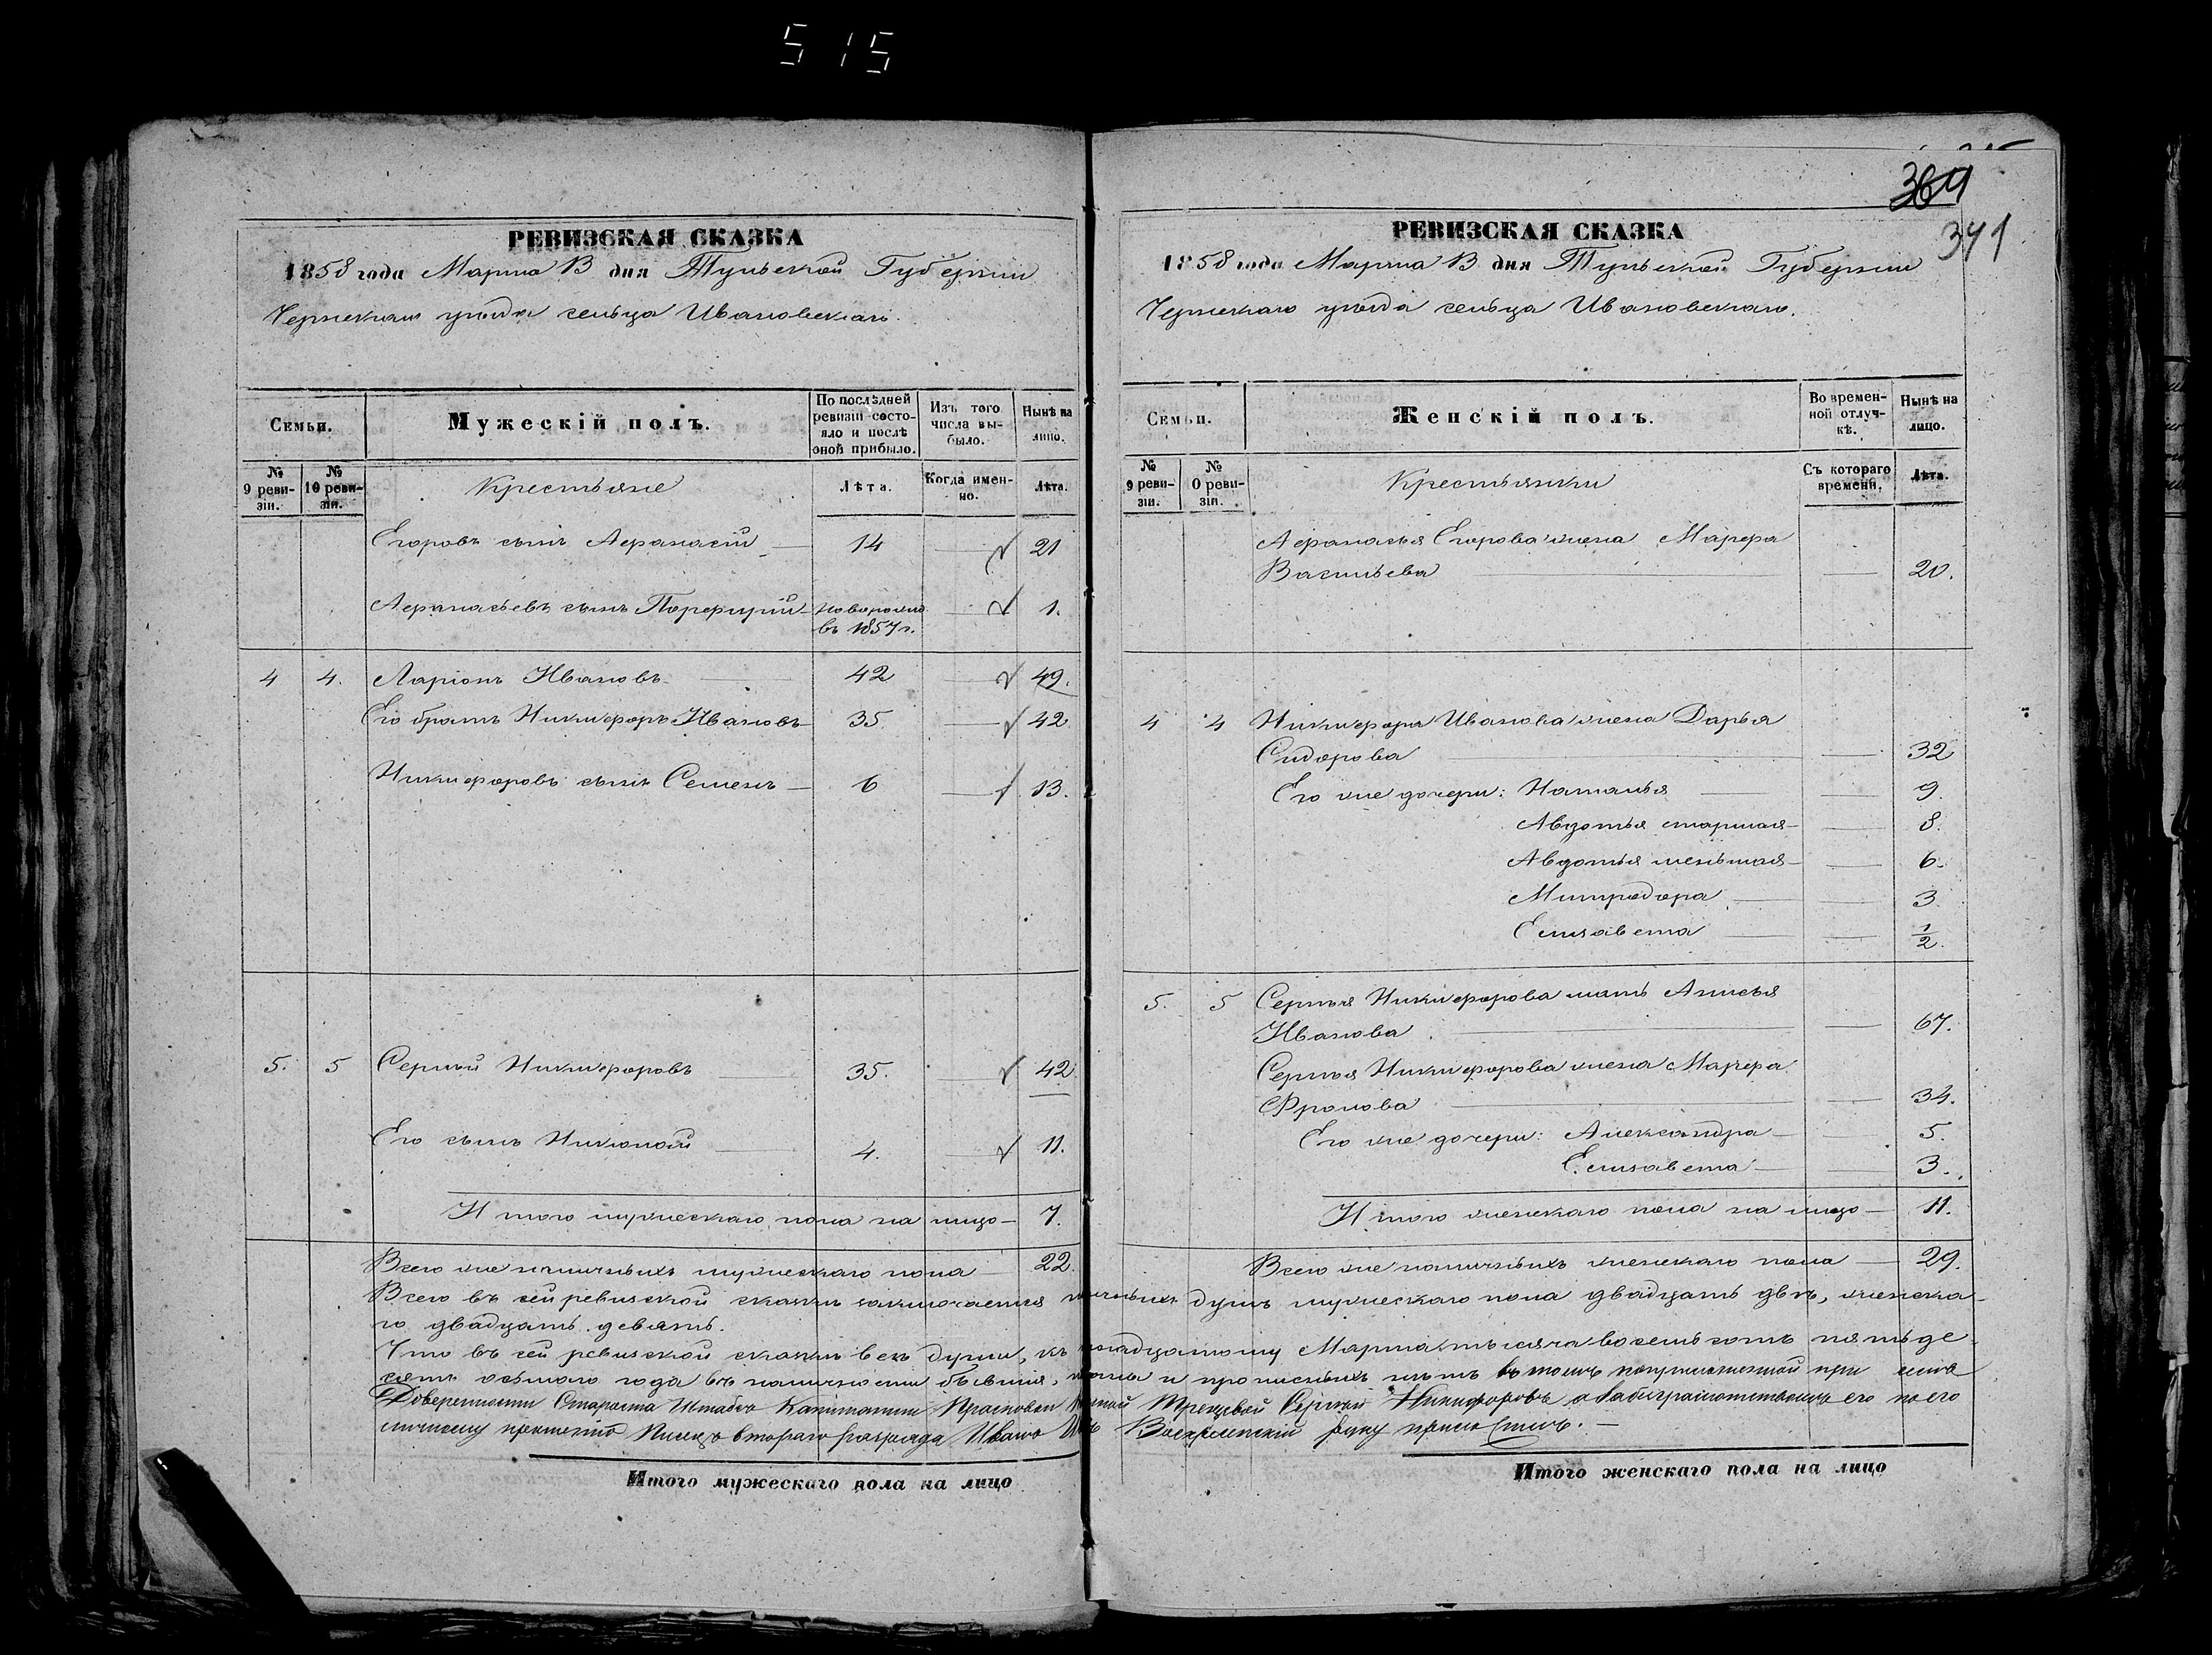 515
364
341
РЕВИЗСКАЯ СКАЗКА
1858 года Марта 13 дня Тульской Губерніи
Чернскаго уѣзда сельца Ивановскаго.
Семьи.
Мужескій полъ.
По послѣдней ревизіи состояло и послѣ оной прибыло.
Изъ того числа выбыло.
Нынѣ на лицо.
№ 9 ревизіи.
№ 10 ревизіи.
Крестьяне
Лѣта.
Когда именно.
Лѣта.
Егоровъ сынъ Афанасій 14 21
Афанасьевъ сынъ Порфирій новорожд. въ 1857 г. 1.
4 4. Ларіонъ Ивановъ 42 49.
Его братъ Никифоръ Ивановъ 35. 42
Никифоровъ сынъ Семенъ 6 13.
5. 5 Сергѣй Никифоровъ 35. 42
Его сынъ Николай 4. 11.
Итого мужескаго пола на лицо 7.
Всего же наличныхъ мужескаго пола 22.
РЕВИЗСКАЯ СКАЗКА
1858 года Марта 13 дня Тульской Губерніи
Чернскаго уѣзда сельца Ивановскаго.
Семьи.
Женскій полъ.
Во временной отлучкѣ.
Нынѣ на лицо.
№ 9 ревизіи.
№ 0 ревизіи.
Крестьянки
Съ котораго времени.
Лѣта.
Афанасья Егорова жена Марфа
Васильева 20.
4 4 Никифора Иванова жена Дарья
Сидорова 32
Его же дочери: Наталья 9.
Авдотья старшая 8.
Авдотья меньшая 6.
Митродора 3.
Елизавета 1/2.
5. 5 Сергѣя Никифорова мать Анисья
Иванова 67.
Сергѣя Никифорова жена Марфа
Фролова 34.
Его же дочери: Александра 5.
Елизавета 3.
Итого женскаго пола на лицо 11.
Всего же наличныхъ женскаго пола 29.
Всего въ сей ревизской сказкѣ заключается наличныхъ душъ мужескаго пола двадцать двѣ, женска-
го двадцать девять.
Что въ сей ревизской сказкѣ всѣ души, къ Марта тысяча восемь сотъ пятьде-
сятъ осьмаго года въ наличности бывшія, и прописныхъ нѣтъ въ томъ при
Довѣренности Староста Штабсъ Капитанши Прасковьи Сергѣй Никифоровъ а его по его
личному прошенію Писецъ втораго разряда Иванъ руку приложилъ.
Итого мужескаго пола на лицо
Итого женскаго пола на лицо